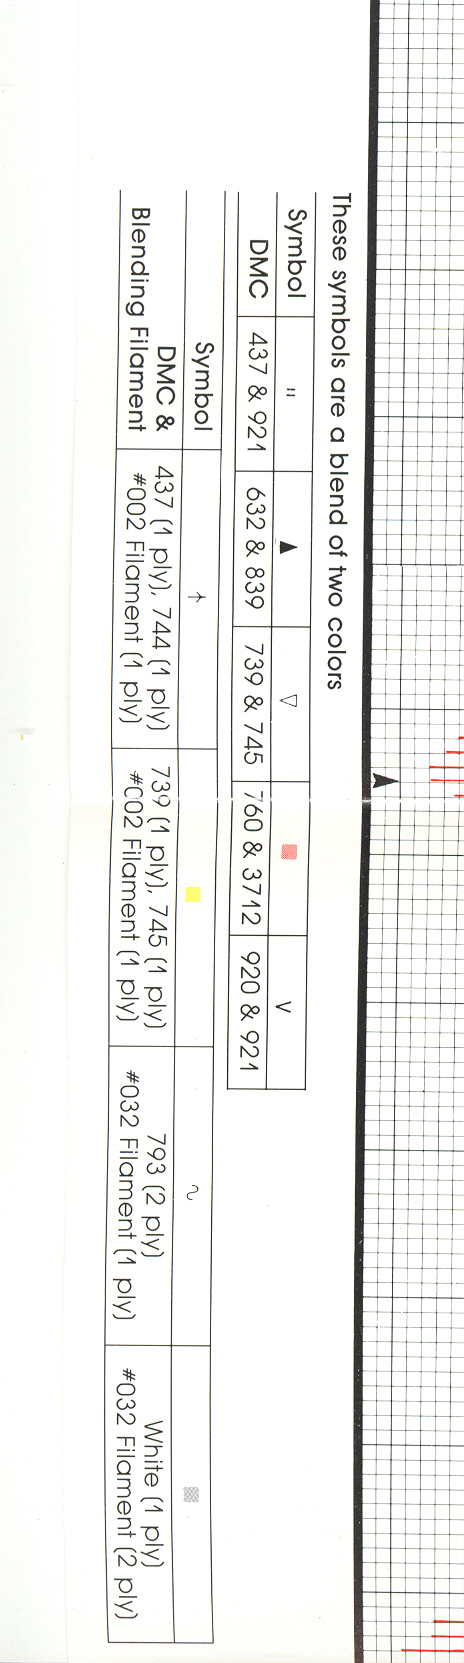 These symbols are a blend of two colors
Symbol " ▲ ▽ V
DMC 437 & 921 632 & 839 739 & 745 760 & 3712 920 & 921
Symbol
DMC & 437 (1 ply), 744 (1 ply) 739 (1 ply), 745 (1 ply) 793 (2 ply) White (1 ply)
Blending Filament #002 Filament (1 ply) #002 Filament (1 ply) #032 Filament (1 ply) #032 Filament (2 ply)